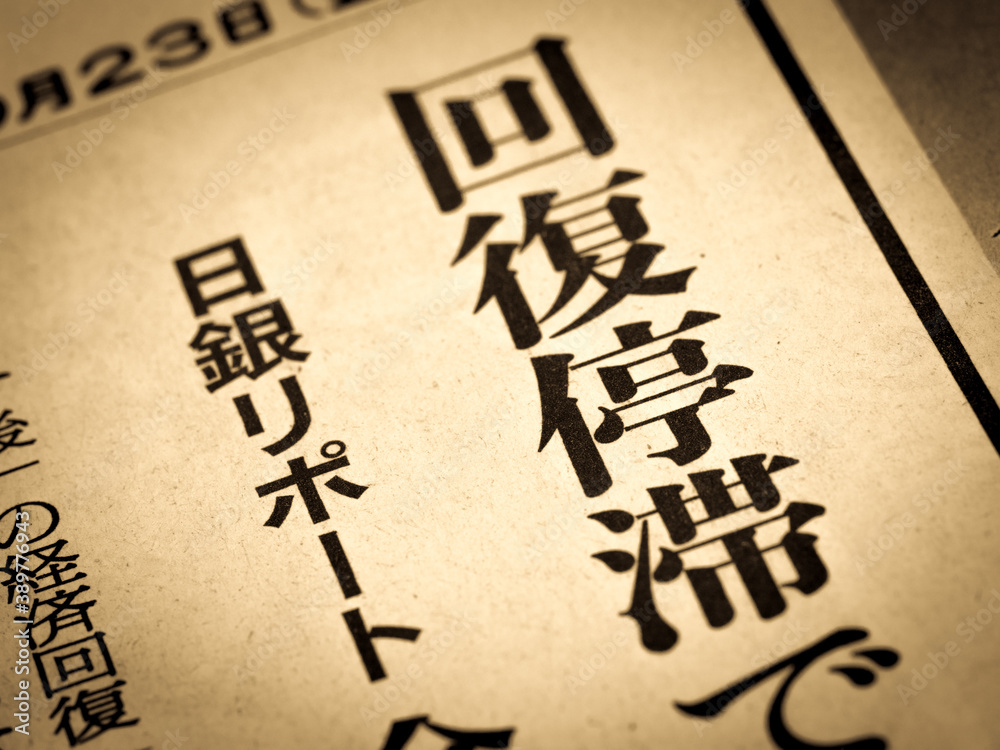 月23日(
回復停滞で
日銀リポート
後一の経済回復
Adobe Stock | #389776943